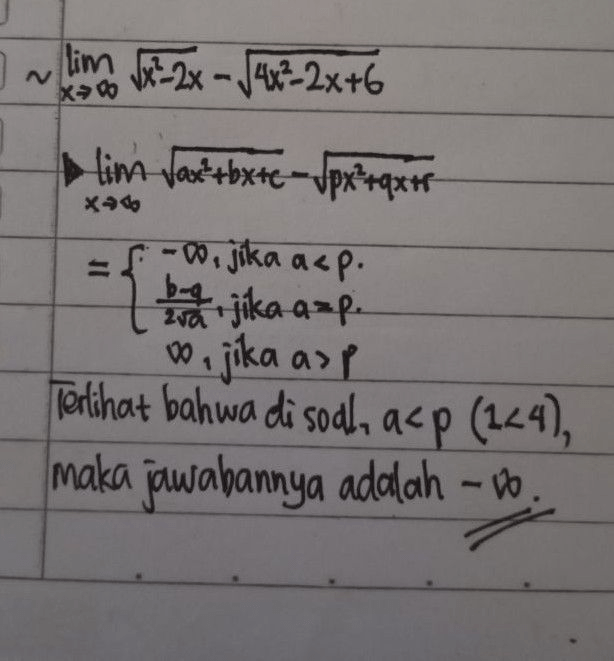 ~ lim x→∞ √x²-2x - √4x²-2x+6
▶ lim x→∞ √ax²+bx+c - √px²+qx+r
= { -∞, jika a < p.
b-q/2√a, jika a = p.
∞, jika a > p
Terlihat bahwa di soal, a < p (1<4),
maka jawabannya adalah -∞.